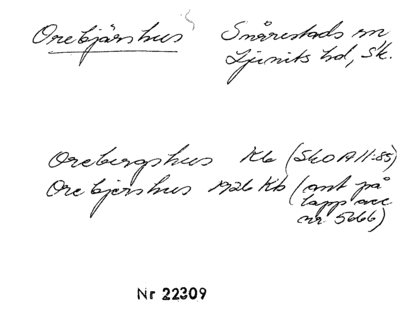 Orebjärshus Snårestads sn
Ljunits hd, Sk.
Orebergshus Kb (SkO A 11:85)
Orebjershus 1926 Kb (ant på
lapp acc
nr 5666)
Nr 22309